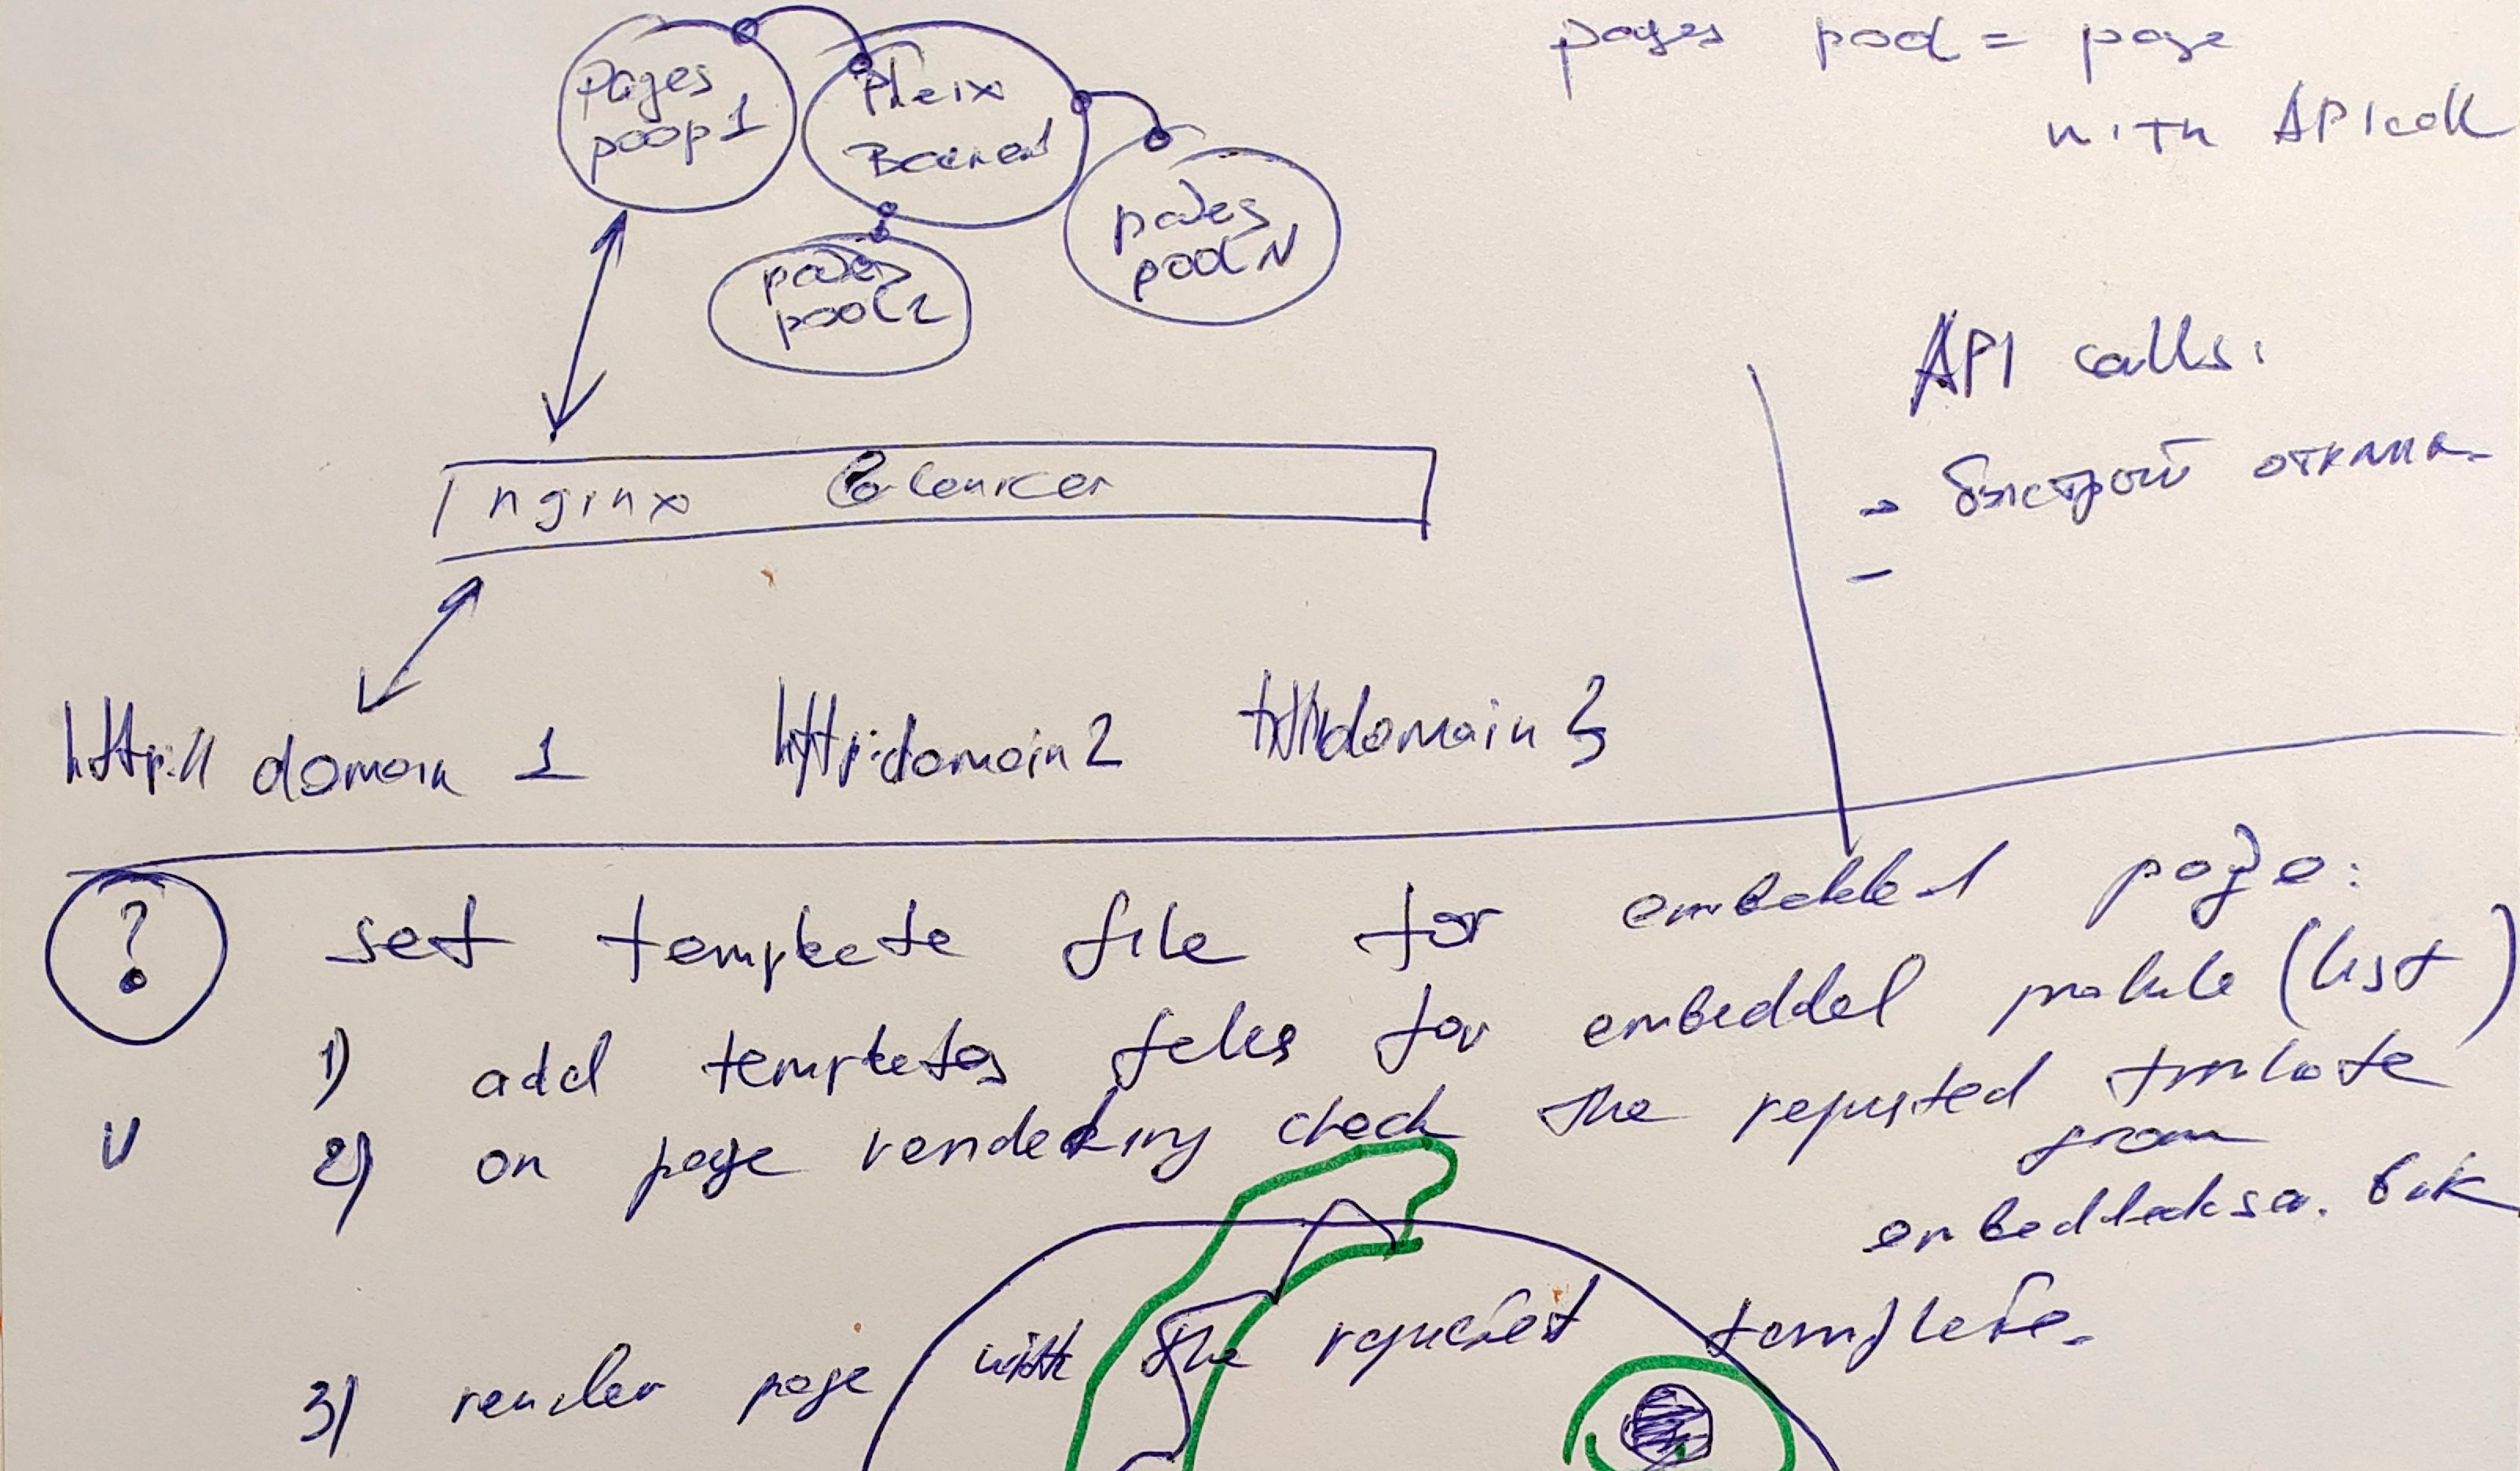 pages
poop 1
Pheix
pages
pod 2
pages
pod N
pages pod = page
with API call
API calls:
- быстрый отклик
-
nginx Balancer
http:// domain 1
http:domain 2
domain 3
?
set template file for embedded page:
1) add templates files for embedded module (list)
v 2) on page rendering check the requested template
from
3) render page with the request template.